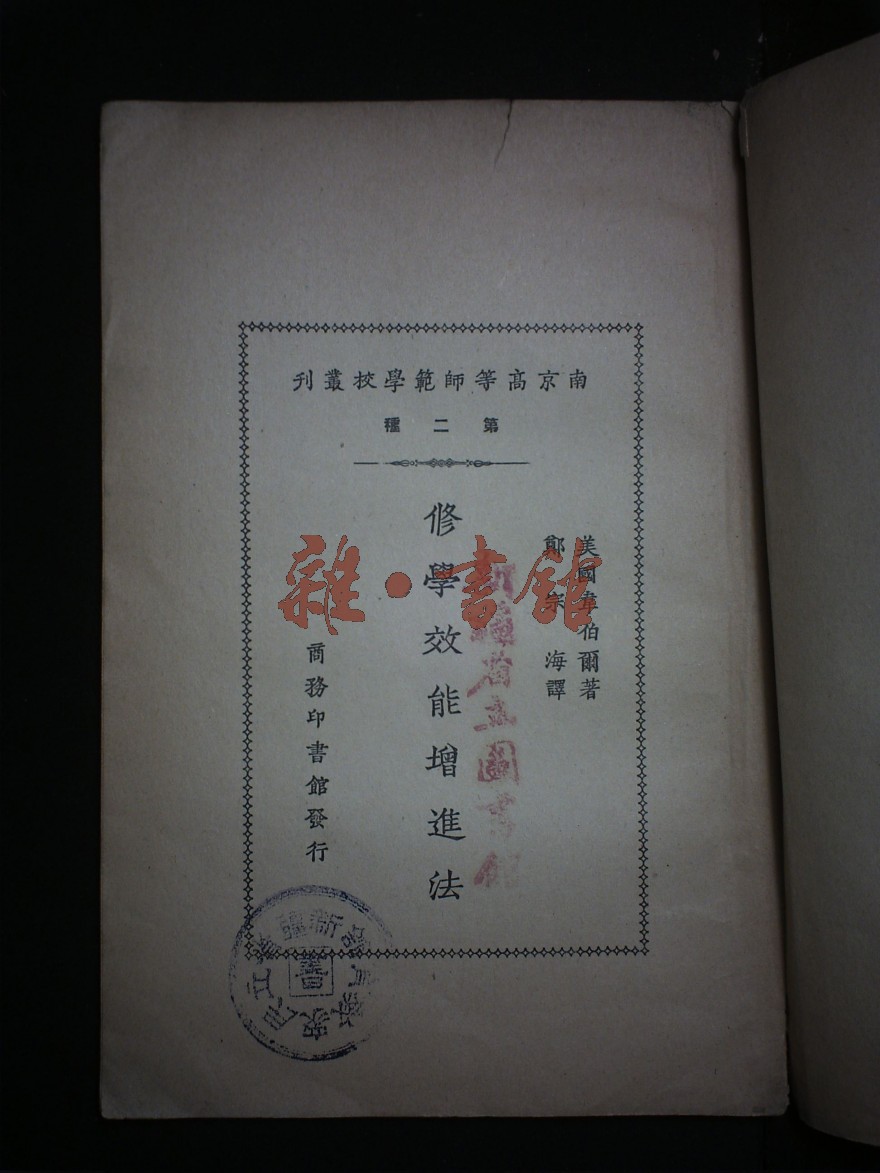 南京高等師範學校叢刊
第二種
美國韋伯爾著
鄭宗海譯
修學效能增進法
商務印書館發行
雜·書館
省立圖書館